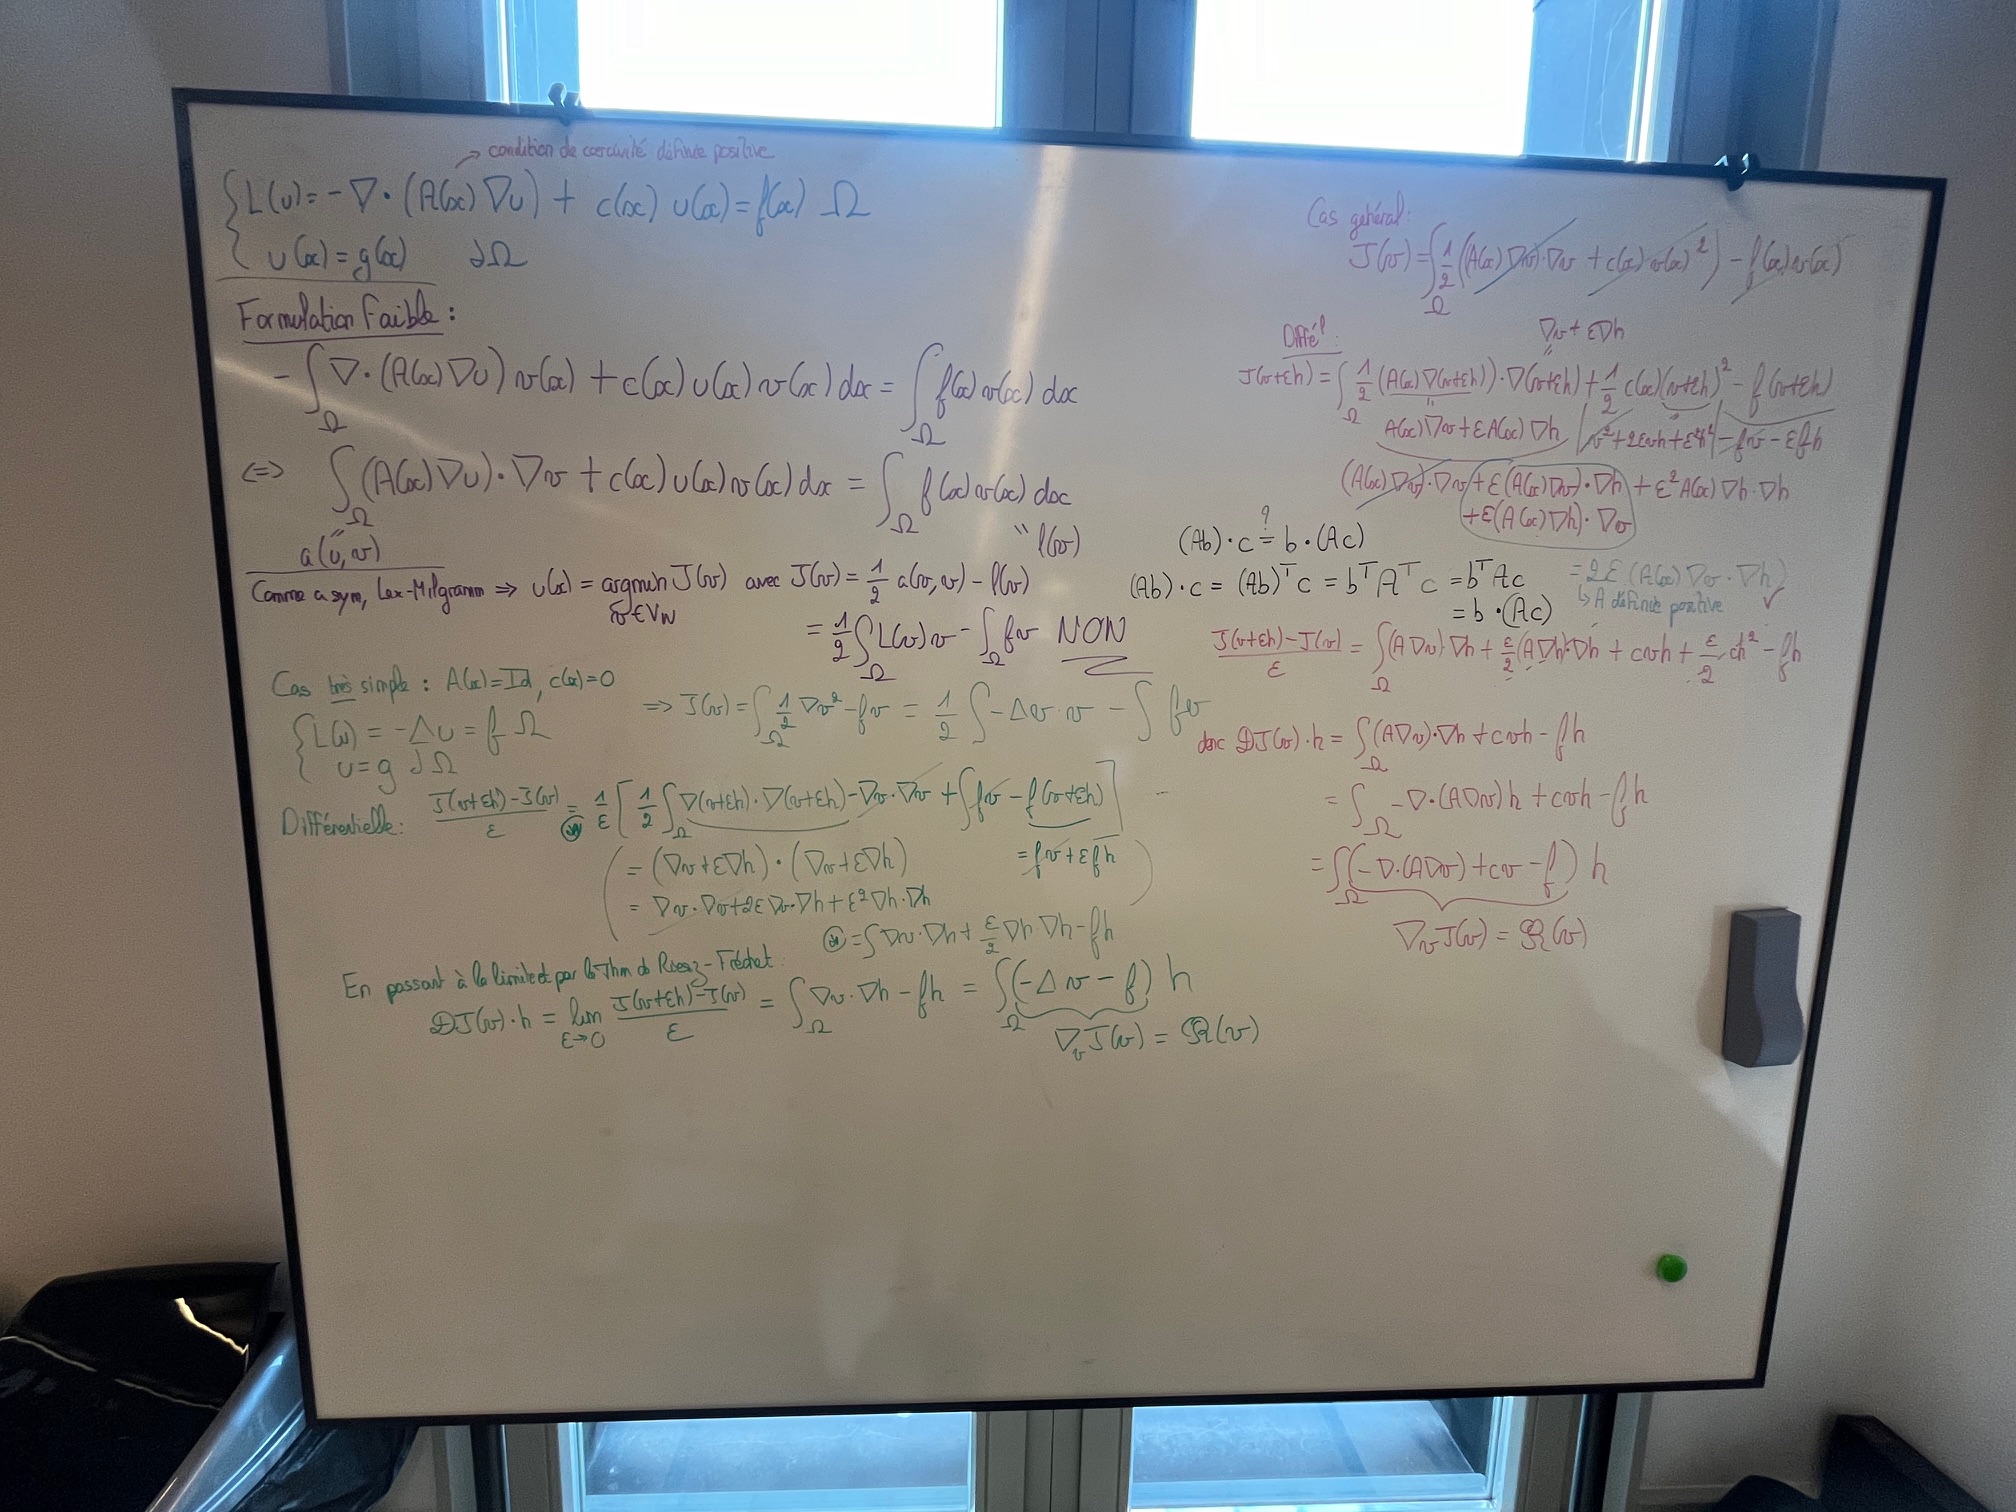 → condition de coercivité définie positive
{ L(u) = -∇·(A(x)∇u) + c(x) u(x) = f(x) Ω
u(x) = g(x) ∂Ω
Formulation Faible :
-∫_Ω ∇·(A(x)∇u) v(x) + c(x) u(x) v(x) dx = ∫_Ω f(x) v(x) dx
<=> ∫_Ω (A(x)∇u)·∇v + c(x) u(x) v(x) dx = ∫_Ω f(x) v(x) dx
" a(u,v) " l(v)
Comme a sym, Lax-Milgramm => u(x) = argmin J(v) avec J(v) = 1/2 a(v,v) - l(v)
v∈V_N
= 1/2 ∫_Ω L(v) v - ∫_Ω fv NON
Cas très simple : A(x) = Id, c(x) = 0
{ L(u) = -Δu = f Ω
u = g ∂Ω
=> J(v) = ∫_Ω 1/2 ∇v² - fv = 1/2 ∫ -Δv·v - ∫ fv
Différentielle : (J(v+εh) - J(v))/ε =(*) 1/ε [ 1/2 ∫_Ω ∇(v+εh)·∇(v+εh) - ∇v·∇v + ∫ fv - f(v+εh) ]
( = (∇v+ε∇h)·(∇v+ε∇h) = fv + εfh )
= ∇v·∇v + 2ε∇v·∇h + ε²∇h·∇h
(*) = ∫ ∇v·∇h + ε/2 ∇h·∇h - fh
En passant à la limite et par le Thm de Riesz-Fréchet :
DJ(v)·h = lim_{ε→0} (J(v+εh) - J(v))/ε = ∫_Ω ∇v·∇h - fh = ∫_Ω (-Δv - f) h
∇_v J(v) = R(v)
Cas général :
J(v) = ∫_Ω 1/2 ((A(x)∇v)·∇v + c(x) v(x)²) - f(x) v(x)
Diffé^l :
∇v + ε∇h
"
J(v+εh) = ∫_Ω 1/2 (A(x)∇(v+εh))·∇(v+εh) + 1/2 c(x)(v+εh)² - f(v+εh)
"
A(x)∇v + εA(x)∇h | v² + 2εvh + ε²h² | - fv - εfh
(A(x)∇v)·∇v + ε(A(x)∇v)·∇h + ε²A(x)∇h·∇h
+ ε(A(x)∇h)·∇v
(Ab)·c =? b·(Ac)
(Ab)·c = (Ab)^T c = b^T A^T c = b^T Ac
= b·(Ac)
= 2ε(A(x)∇v·∇h)
↳ A définie positive ✓
(J(v+εh) - J(v))/ε = ∫_Ω (A∇v)·∇h + ε/2 (A∇h)·∇h + cvh + ε/2 ch² - fh
donc DJ(v)·h = ∫_Ω (A∇v)·∇h + cvh - fh
= ∫_Ω -∇·(A∇v)h + cvh - fh
= ∫_Ω (-∇·(A∇v) + cv - f) h
∇_v J(v) = R(v)